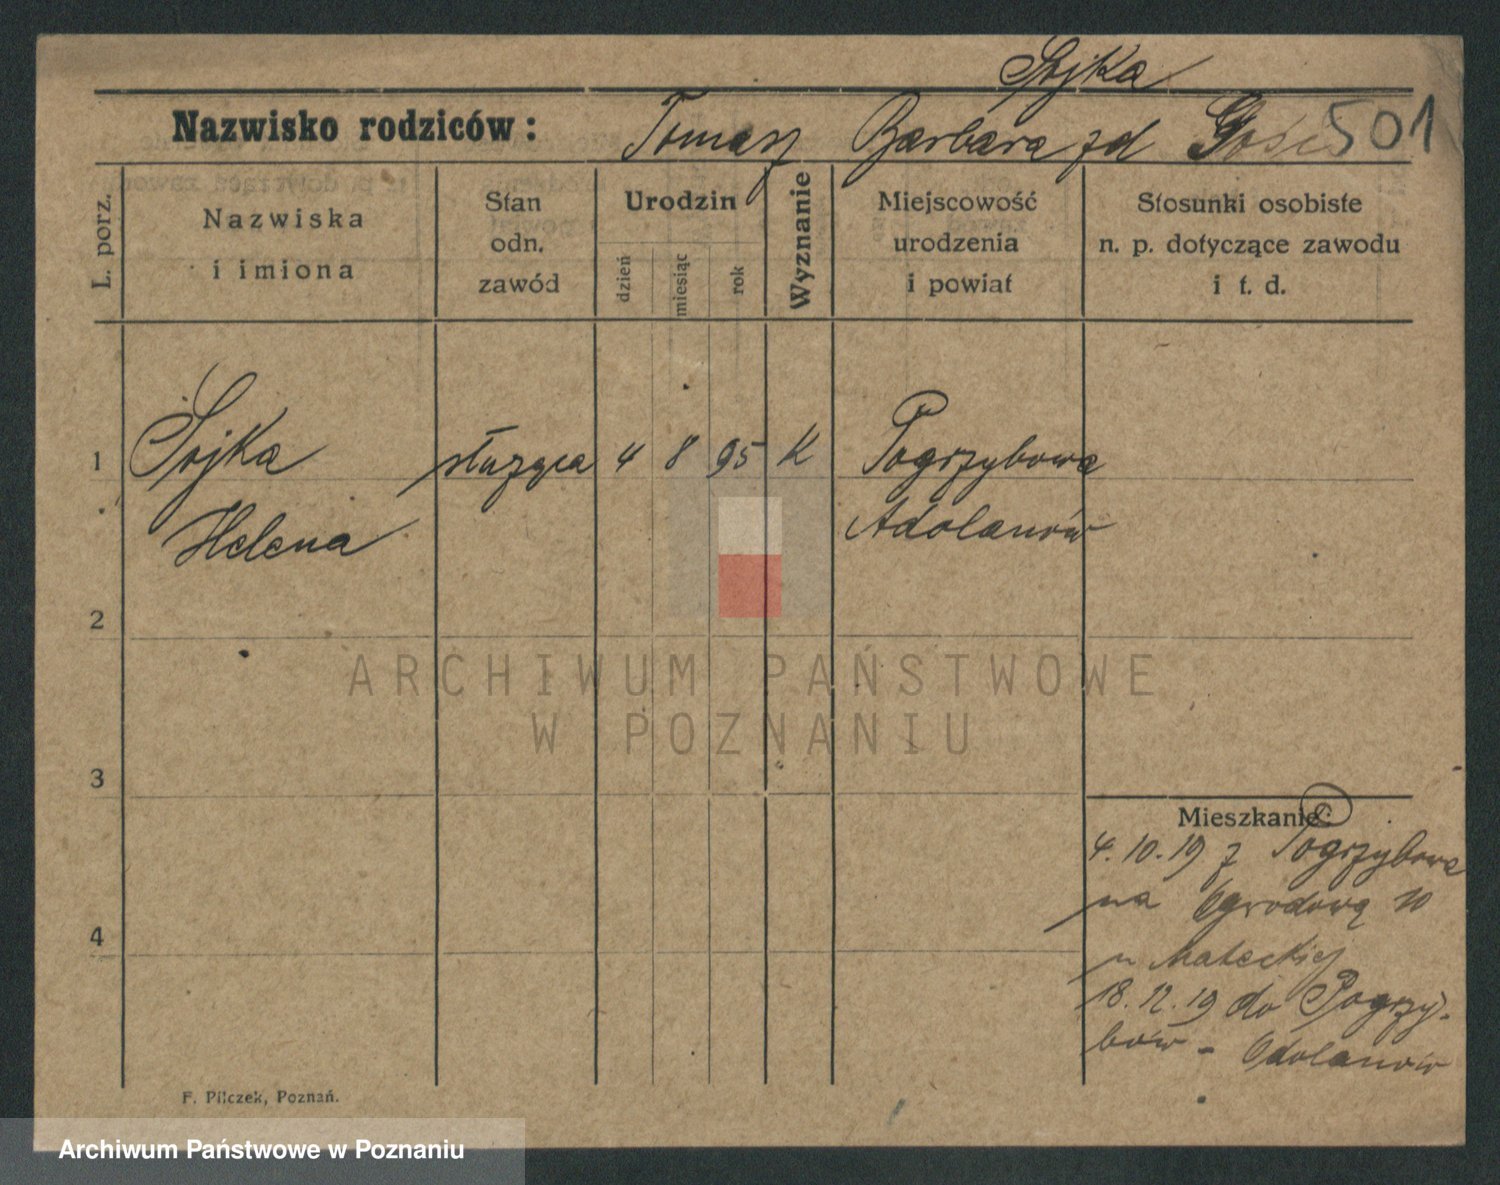 Sojka
Nazwisko rodziców: Tomasz Barbara zd Gości 501
L. porz.
Nazwiska
i imiona
Stan
odn.
zawód
Urodzin
dzień
miesiąc
rok
Wyznanie
Miejscowość
urodzenia
i powiat
Stosunki osobiste
n. p. dotyczące zawodu
i t. d.
1 Sojka służąca 4 8 95 K Pogrzybowa
Helena Adolanów
2
ARCHIWUM PAŃSTWOWE
W POZNANIU
3
Mieszkanie:
4.10.19 z Pogrzybowa
na Ogrodową 10
4
u Mateckiej
18.12.19 do Pogrzy-
bów - Odolanów
F. Pilczek, Poznań.
Archiwum Państwowe w Poznaniu